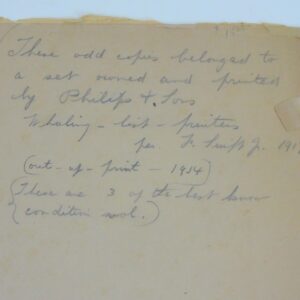 These odd copies belonged to
a set owned and printed
by Philips & Sons
Whaling - list - printers
per F.
(out - of - print - 1914
(These are 3 of the best
condition